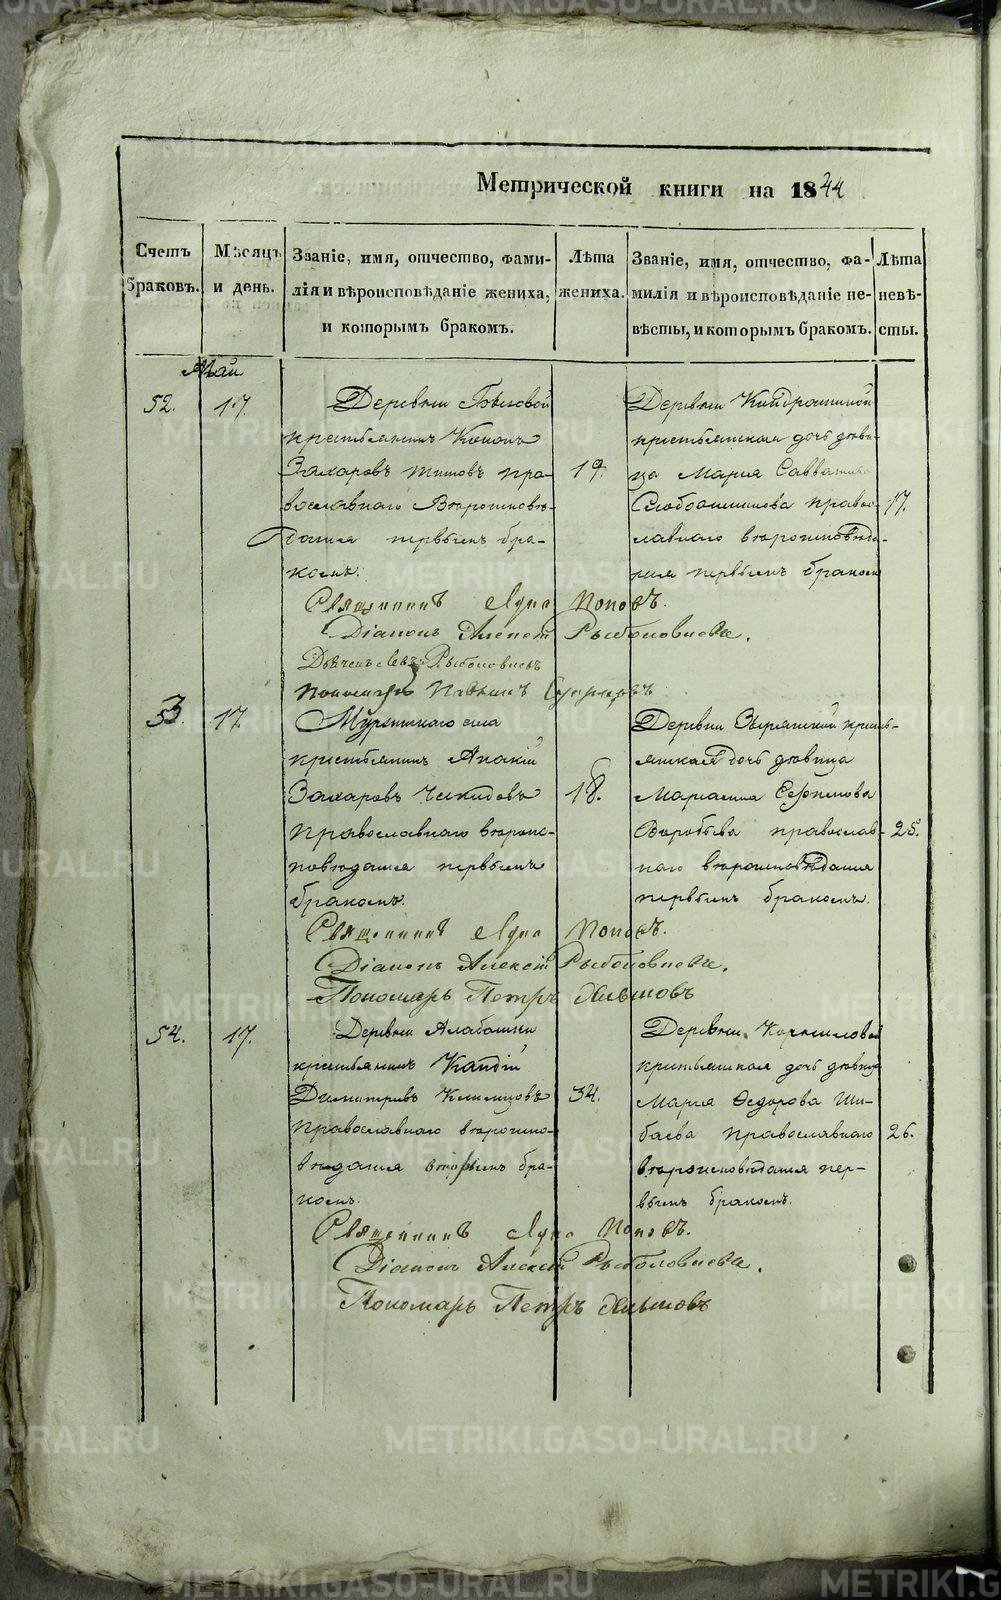 Метрической книги на 1844
Счетъ браковъ.
Мѣсяцъ и день.
Званіе, имя, отчество, фами-
лія и вѣроисповѣданіе жениха,
и которымъ бракомъ.
Лѣта жениха.
Званіе, имя, отчество, фа-
милія и вѣроисповѣданіе не-
вѣсты, и которымъ бракомъ.
Лѣта невѣ-
сты.
Май
52.
17.
Деревни
крестьянинъ Кононъ
Захаровъ Титовъ пра-
вославнаго вѣроисповѣ-
данія первымъ бра-
комъ.
19.
Деревни
крестьянская дочь дѣви-
ца Марія
правос-
лавнаго вѣроисповѣда-
нія первымъ бракомъ
17.
Священникъ Поповъ.
Діаконъ Алексій Рыболовлева.
Рыболовлевъ
пономарь
53
17.
села
крестьянинъ
Захаровъ
православнаго вѣроис-
повѣданія первымъ
бракомъ.
18.
Деревни Зырянской кресть-
янская дочь дѣвица
Воробьева православ-
наго вѣроисповѣданія
первымъ бракомъ.
25.
Священникъ Поповъ.
Діаконъ Алексій Рыболовлева.
Пономарь Петръ
54.
17.
Деревни Алабашки
крестьянинъ
Димитріевъ
православнаго вѣроиспо-
вѣданія вторымъ бра-
комъ.
34.
Деревни Корниловой
крестьянская дочь дѣвица
Марія Ѳедорова Ши-
баева православнаго
вѣроисповѣданія пер-
вымъ бракомъ.
26.
Священникъ Поповъ.
Діаконъ Алексій Рыболовлева.
Пономарь Петръ
METRIKI.GASO-URAL.RU